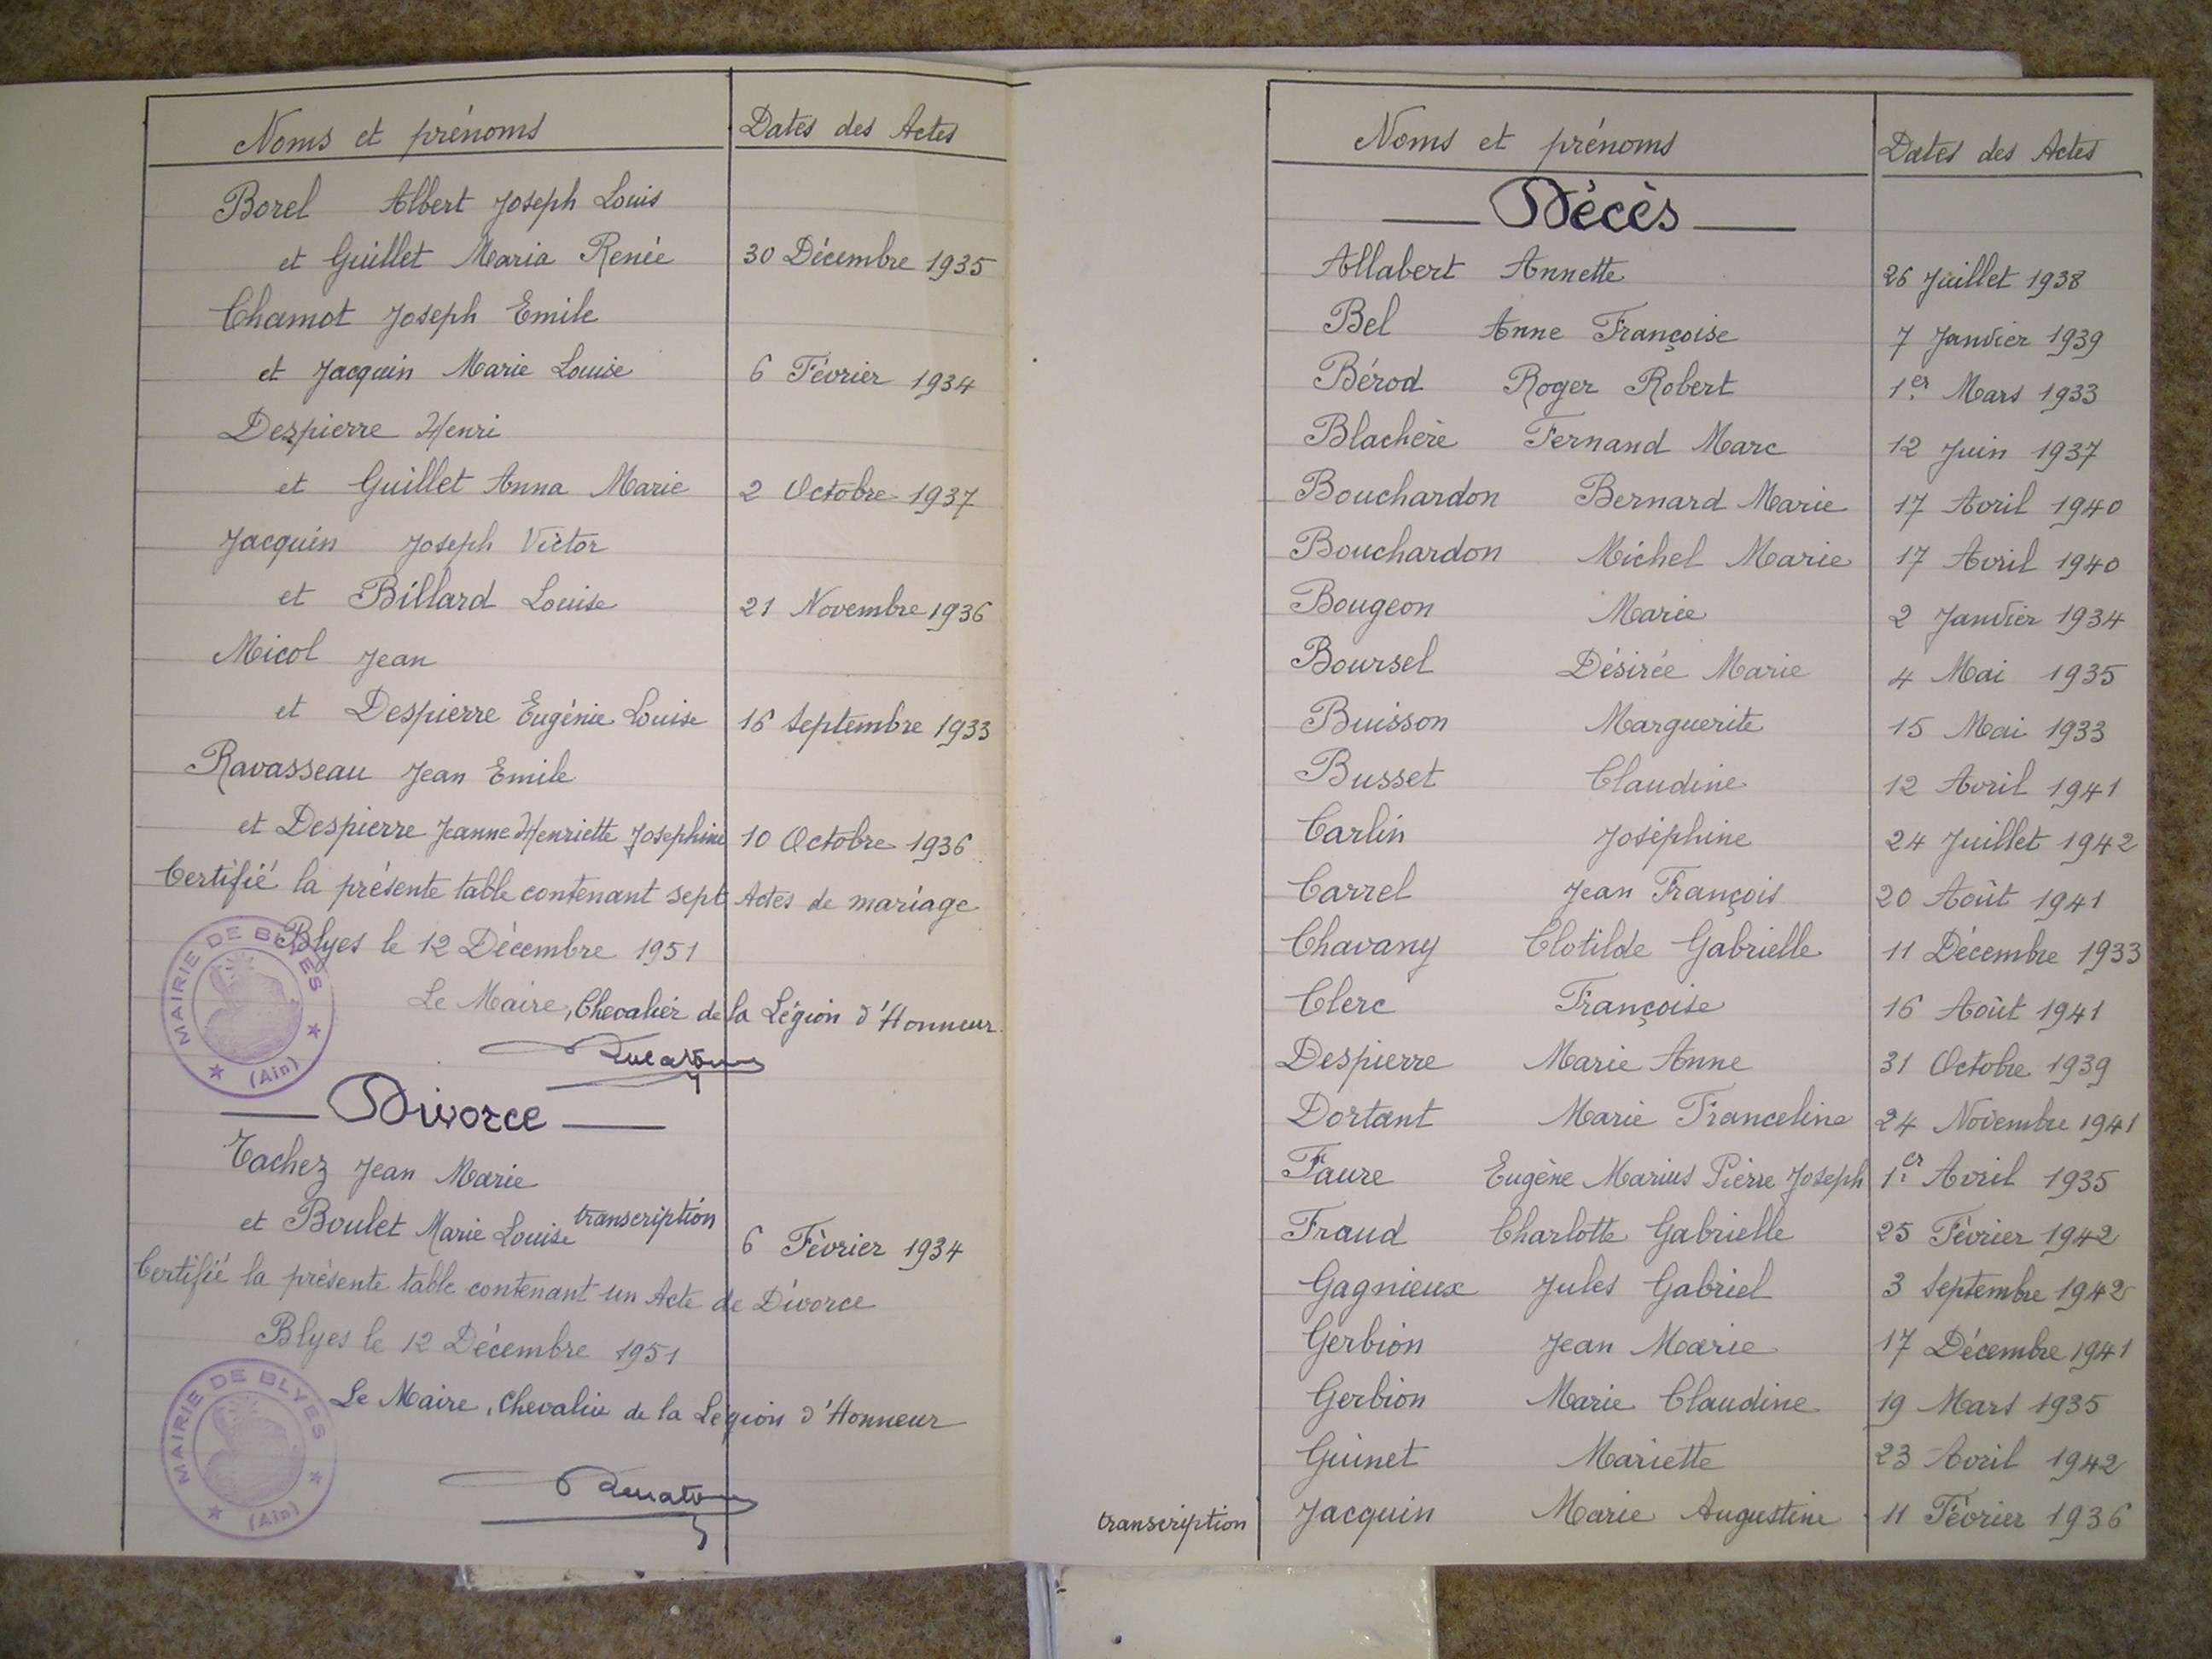 Noms et prénoms Dates des Actes
Borel Albert Joseph Louis
et Guillet Maria Renée 30 Décembre 1935
Chamot Joseph Emile
et Jacquin Marie Louise 6 Février 1934
Despierre Henri
et Guillet Anna Marie 2 Octobre 1937
Jacquin Joseph Victor
et Billard Louise 21 Novembre 1936
Micol Jean
et Despierre Eugénie Louise 16 Septembre 1933
Ravasseau Jean Emile
et Despierre Jeanne Henriette Josephine 10 Octobre 1936
Certifié la présente table contenant sept Actes de mariage
Blyes le 12 Décembre 1951
Le Maire, Chevalier de la Légion d'Honneur
MAIRIE DE BLYES
(Ain)
Divorce
Tachez Jean Marie
et Boulet Marie Louise transcription 6 Février 1934
Certifié la présente table contenant un Acte de Divorce
Blyes le 12 Décembre 1951
Le Maire, Chevalier de la Légion d'Honneur
MAIRIE DE BLYES
(Ain)
Noms et prénoms Dates des Actes
Décès
Allabert Annette 26 Juillet 1938
Bel Anne Françoise 7 Janvier 1939
Bérod Roger Robert 1er Mars 1933
Blachère Fernand Marc 12 Juin 1937
Bouchardon Bernard Marie 17 Avril 1940
Bouchardon Michel Marie 17 Avril 1940
Bougeon Marie 2 Janvier 1934
Boursel Désirée Marie 4 Mai 1935
Buisson Marguerite 15 Mai 1933
Busset Claudine 12 Avril 1941
Carlin Joséphine 24 Juillet 1942
Carrel Jean François 20 Août 1941
Chavany Clotilde Gabrielle 11 Décembre 1933
Clerc Françoise 16 Août 1941
Despierre Marie Anne 31 Octobre 1939
Dortant Marie Franceline 24 Novembre 1941
Faure Eugène Marius Pierre Joseph 1er Avril 1935
Fraud Charlotte Gabrielle 25 Février 1942
Gagnieux Jules Gabriel 3 Septembre 1942
Gerbion Jean Marie 17 Décembre 1941
Gerbion Marie Claudine 19 Mars 1935
Guinet Mariette 23 Avril 1942
transcription Jacquin Marie Augustine 11 Février 1936